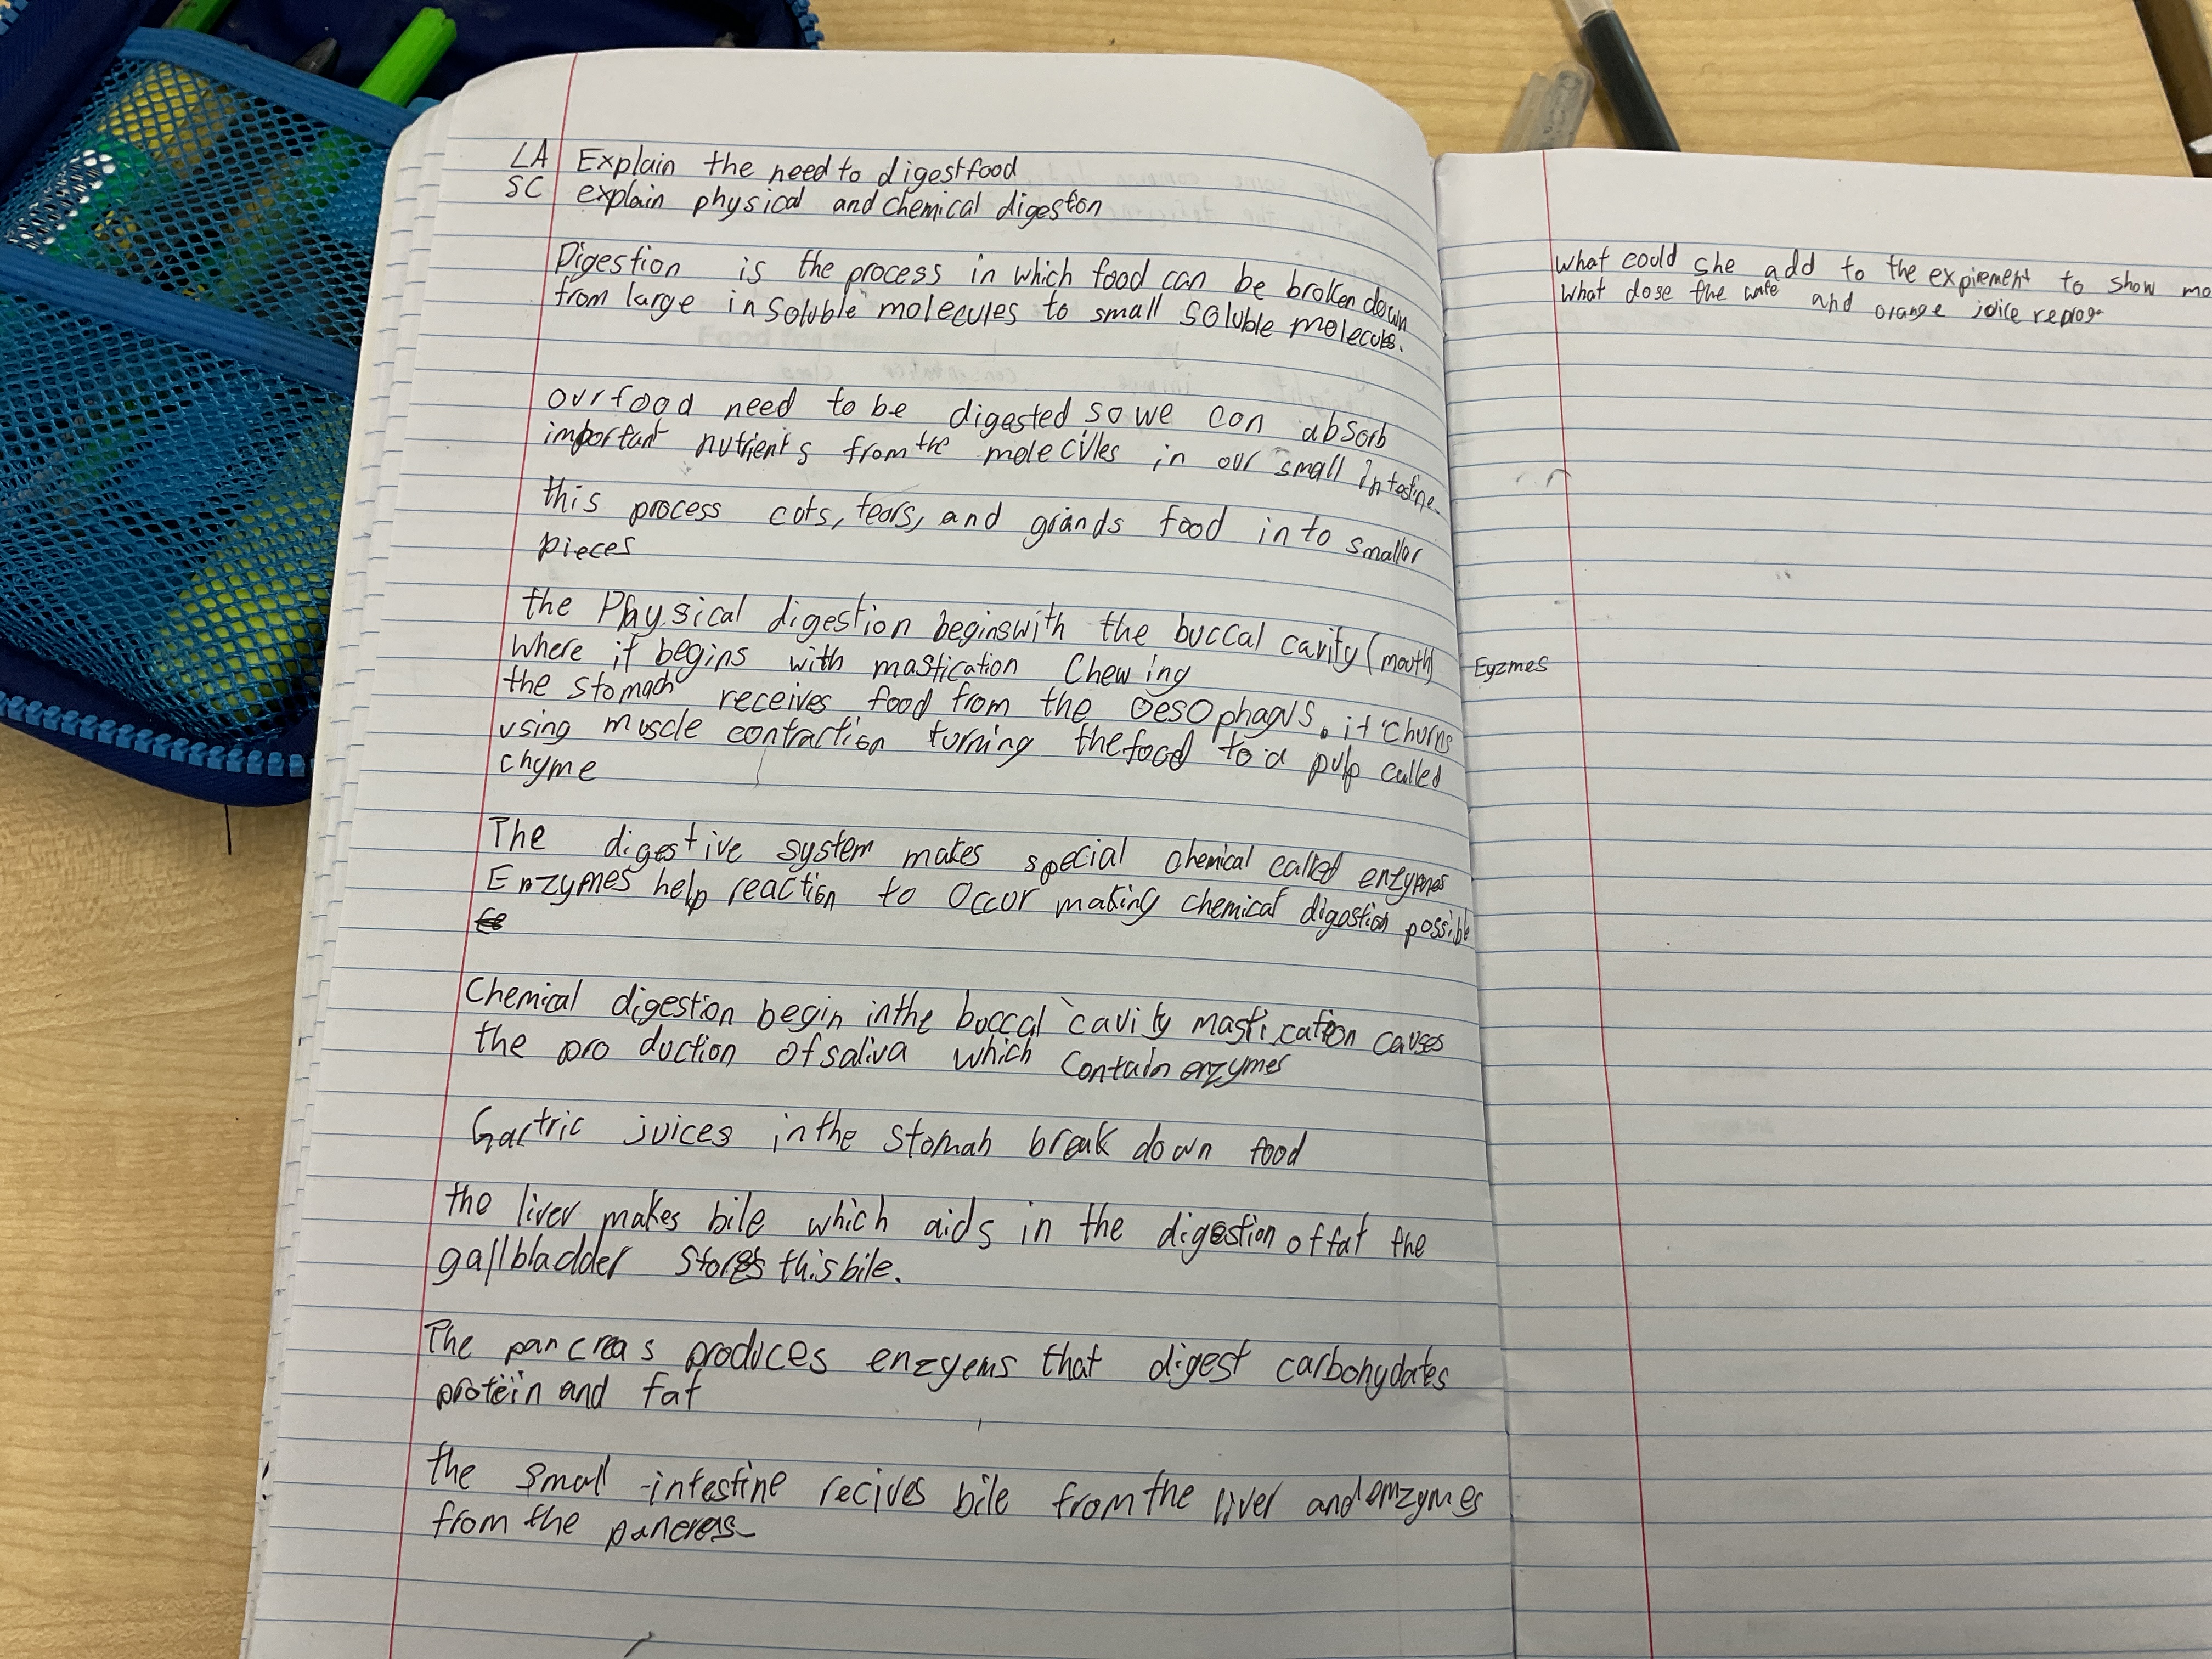 LA Explain the need to digest food
SC explain physical and chemical digeston
Digestion is the process in which food can be broken down
from large insoluble molecules to small soluble molecules.
our food need to be digested so we can absorb
important nutrients from the molecules in our small intestine
this process cuts, tears, and grinds food in to smaller
pieces
the Physical digestion begins with the buccal cavity (mouth)
where it begins with mastication Chewing
the stomach receives food from the oesophagus. it churns
using muscle contraction turning the food to a pulp called
chyme
The digestive system makes special chemical called enzymes
Enzymes help reaction to occur making chemical digestion possible
Chemical digestion begin in the buccal cavity mastication causes
the production of saliva which contain enzymes
Gartric juices in the stomah break down food
the liver makes bile which aids in the digestion of fat the
gallbladder stores this bile.
The pancreas produces enzyems that digest carbohydates
protein and fat
the small intestine recives bile from the liver and enzymes
from the pancreas
what could she add to the expirement to show mo
what dose the and orange joice
Eyzmes